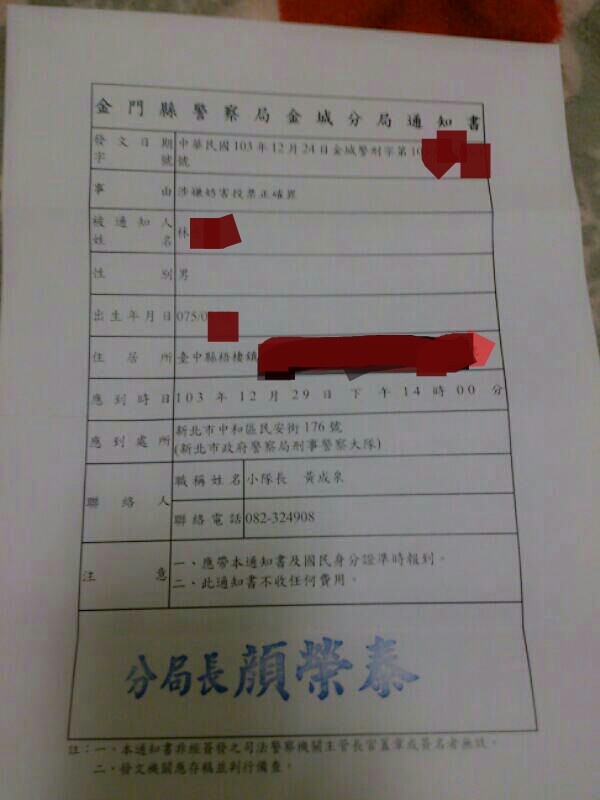 金門縣警察局金城分局通知書
發文日期 中華民國103年12月24日金城警刑字第10
字號 號
事由 涉嫌妨害投票正確罪
被通知人 林
姓名
性別 男
出生年月日 075/0
住居所 臺中縣梧棲鎮
應到時日 103年12月29日下午14時00分
應到處所 新北市中和區民安街176號
(新北市政府警察局刑事警察大隊)
聯絡人 職稱姓名 小隊長 黃成泉
聯絡電話 082-324908
注意 一、應帶本通知書及國民身分證準時報到。
二、此通知書不收任何費用。
分局長 顏榮泰
註:一、本通知書非經簽發之司法警察機關主管長官蓋章或簽名者無效。
二、發文機關應存稿並列行備查。